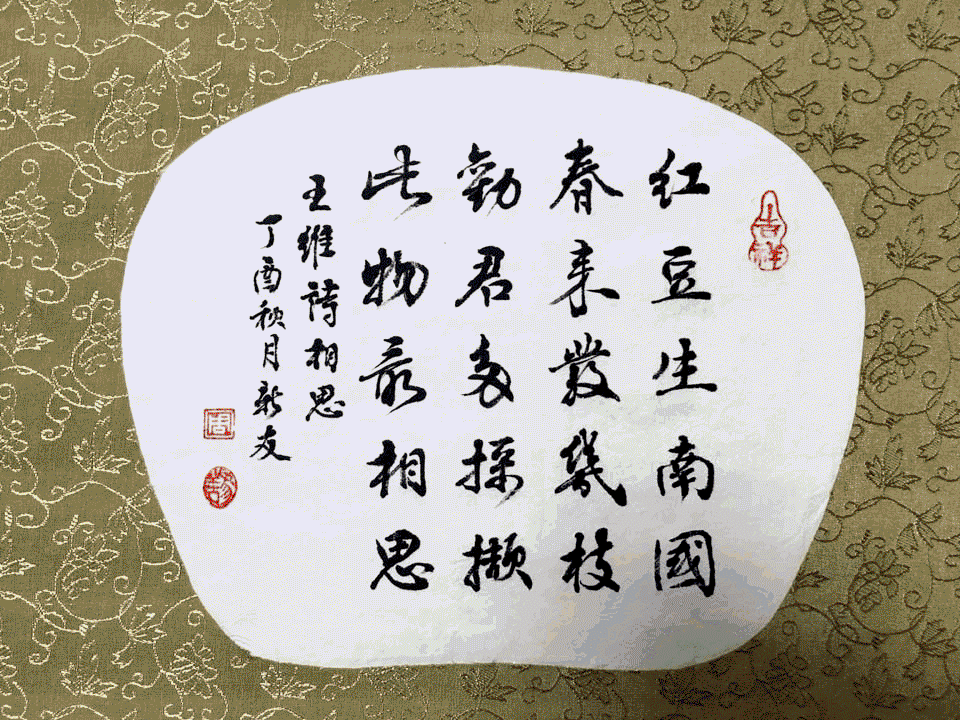 吉祥
红豆生南國
春来發幾枝
勸君多採擷
此物最相思
王維詩相思
丁酉秋月新友
周